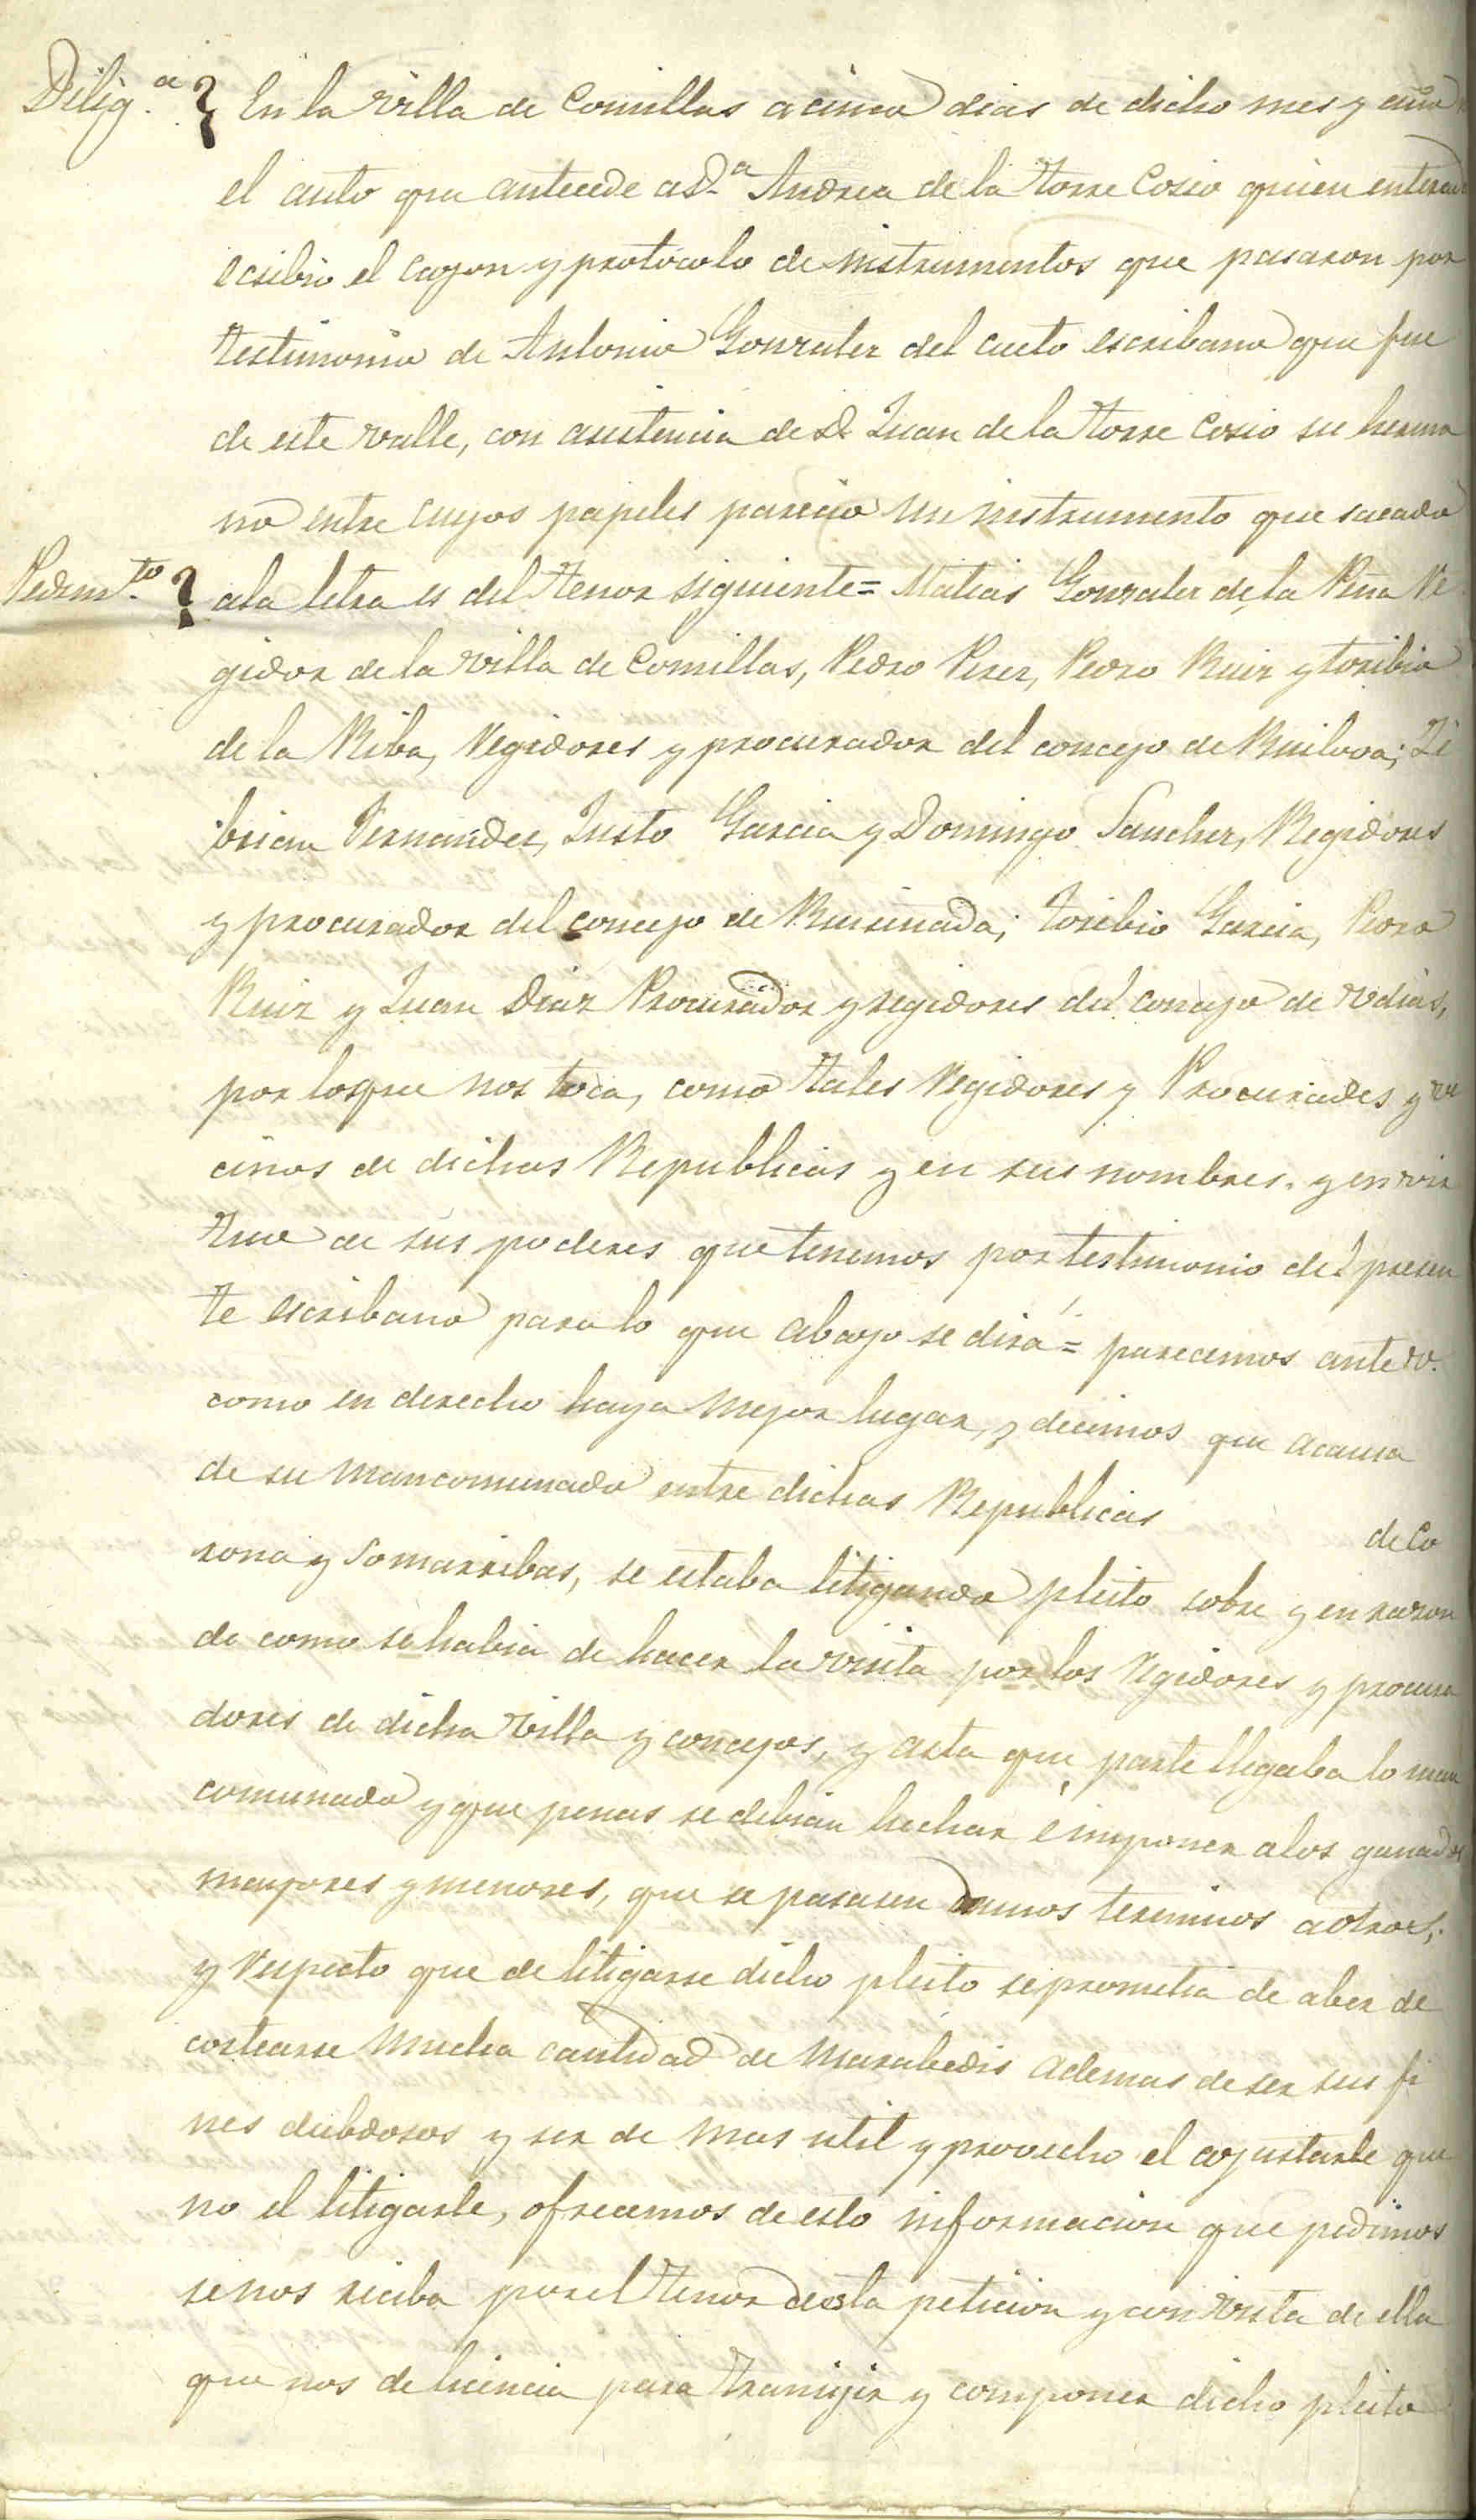 Dilig.ª En la villa de Comillas a cinco dias de dicho mes y año
el auto que antecede a D.ª Andrea de la Torre Cosio quien enterad
ecsibio el cajon y protocolo de instrumentos que pasaron por
testimonio de Antonio Gonzalez del Cueto escribano que fue
de este valle, con asistencia de D. Juan de la Torre Cosio su herma
no entre cuyos papeles parecio un instrumento que sacado
Pedim.to a la letra es del tenor siguiente = Matias Gonzalez de la Pina Re
gidor de la villa de Comillas, Pedro Perez, Pedro Ruiz y toribio
de la Riba, Regidores y procurador del concejo de Ruilova; Zi
brian Fernandez, Justo Garcia y Domingo Sanchez, Regidores
y procurador del concejo de Ruiseñada; Toribio Garcia, Pedro
Ruiz y Juan Diaz Procurador y regidores del concejo de vdias,
por loque nos toca, como tales Regidores y Procurades y ve
cinos de dichas Republicas y en sus nombres. y en vir
tud de sus poderes que tenemos por testimonio del presen
te escribano para lo que abajo se dirá = parecemos ante v.
como en derecho haya mejor lugar, y decimos que a causa
de su mancomunado entre dichas Republicas de Co
rona y Somarribas, se estaba litigando pleito sobre y en razon
de como se habia de hacer la visita por los Regidores y procura
dores de dicha villa y concejos, y asta que parte llegaba lo man
comunado y que penas se debian hechar é imponer a los ganados
mayores y menores, que se pasasen de unos terminos a otros;
y respecto que de litigarse dicho pleito se prometia de aber de
costearse mucha cantidad de marabedis ademas de ser sus fi
nes dubdosos y ser de mas util y provecho el ajustarle que
no el litigarle, ofrecemos de esto informacion que pedimos
se nos reciba por el tenor desta peticion y con vista de ella
que nos de licencia para transijir y componer dicho pleito